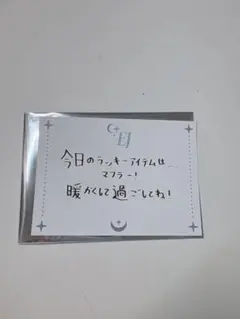 EJ
今日のラッキーアイテムは
マフラー!
暖かくして過ごしてね!